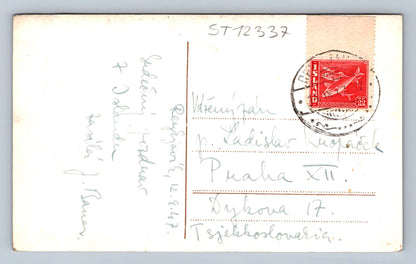 ST12337
ISLAND
Reykjavík, 12.9.47.
Srdečný pozdrav
z Islandu
zasílá J. Bauer.
Vážený pán
p. Ladislav
Praha XII.
Dykova 17.
Tsjekkoslovakia.